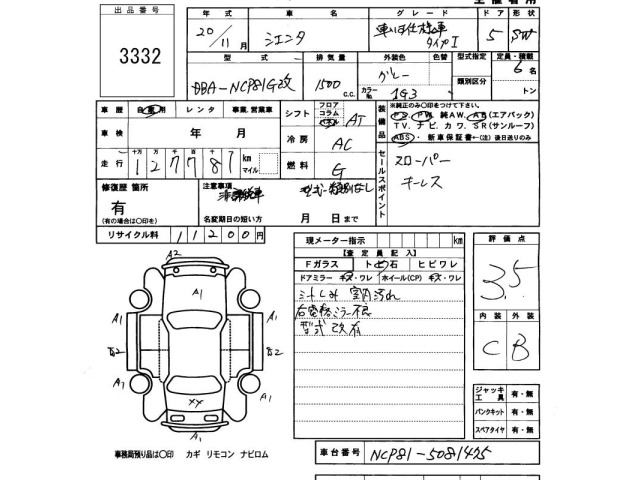 出品番号
3332
年式 車名 グレード ドア 形状
20/11月 シエンタ 車いす仕様車 タイプI 5 SW
型式 排気量 外装色 色替 型式指定 定員・積載
DBA-NCP81G改 1500 C.C. グレー
カラーNo. 1G3 類別区分 6名
トン
車歴 自家用 レンタ 事業、営業車
車検 年 月
走行 十万 万 千 百 十 一
127787 km
マイル
シフト フロア コラム パネル AT
冷房 AC
燃料 G
装備品 ※純正のみ○印をつけて下さい。
PS PW 純AW、AB(エアバック)
TV、ナビ、カワ、SR(サンルーフ)
ABS・新車保証書←(注)後日送りのみ
セールスポイント
スローパー
キーレス
修復歴 箇所
有
(有の場合は○印を)
注意事項
名変期日の短い方 月 日まで
リサイクル料 11200円
現メーター指示 km
【査定員記入】
Fガラス トビ石 ヒビワレ
ドアミラー キズ・ワレ ホイール(CP) キズ・ワレ
シートしみ 室内汚れ
右電格ミラー不良
型式 改 有
評価点
3.5
内装 外装
C B
A2
A1
A1 A1
A1 A1
XY
A1
ジャッキ 工具 有・無
パンクキット 有・無
スペアタイヤ 有・無
事務局預り品は○印 カギ リモコン ナビロム
車台番号 NCP81-5081425